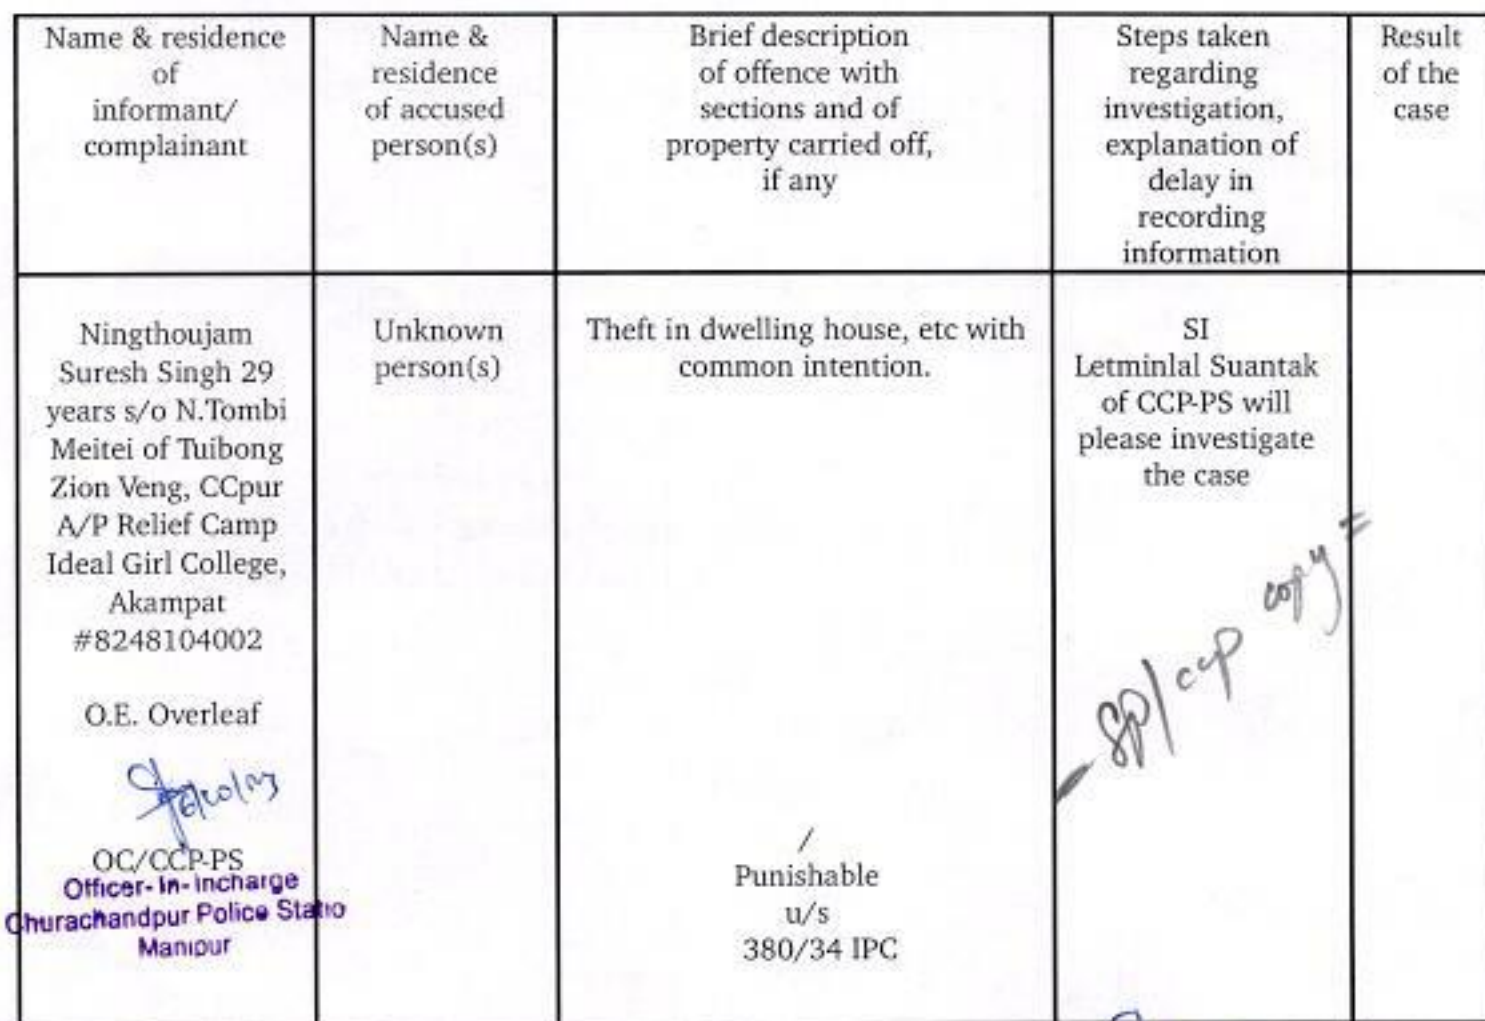 Name & residence
of
informant/
complainant
Name &
residence
of accused
person(s)
Brief description
of offence with
sections and of
property carried off,
if any
Steps taken
regarding
investigation,
explanation of
delay in
recording
information
Result
of the
case
Ningthoujam
Suresh Singh 29
years s/o N.Tombi
Meitei of Tuibong
Zion Veng, CCpur
A/P Relief Camp
Ideal Girl College,
Akampat
#8248104002
O.E. Overleaf
OC/CCP-PS
Officer-In-Incharge
Churachandpur Police Statio
Manipur
Unknown
person(s)
Theft in dwelling house, etc with
common intention.
/
Punishable
u/s
380/34 IPC
SI
Letminlal Suantak
of CCP-PS will
please investigate
the case
- SP/ccp copy =